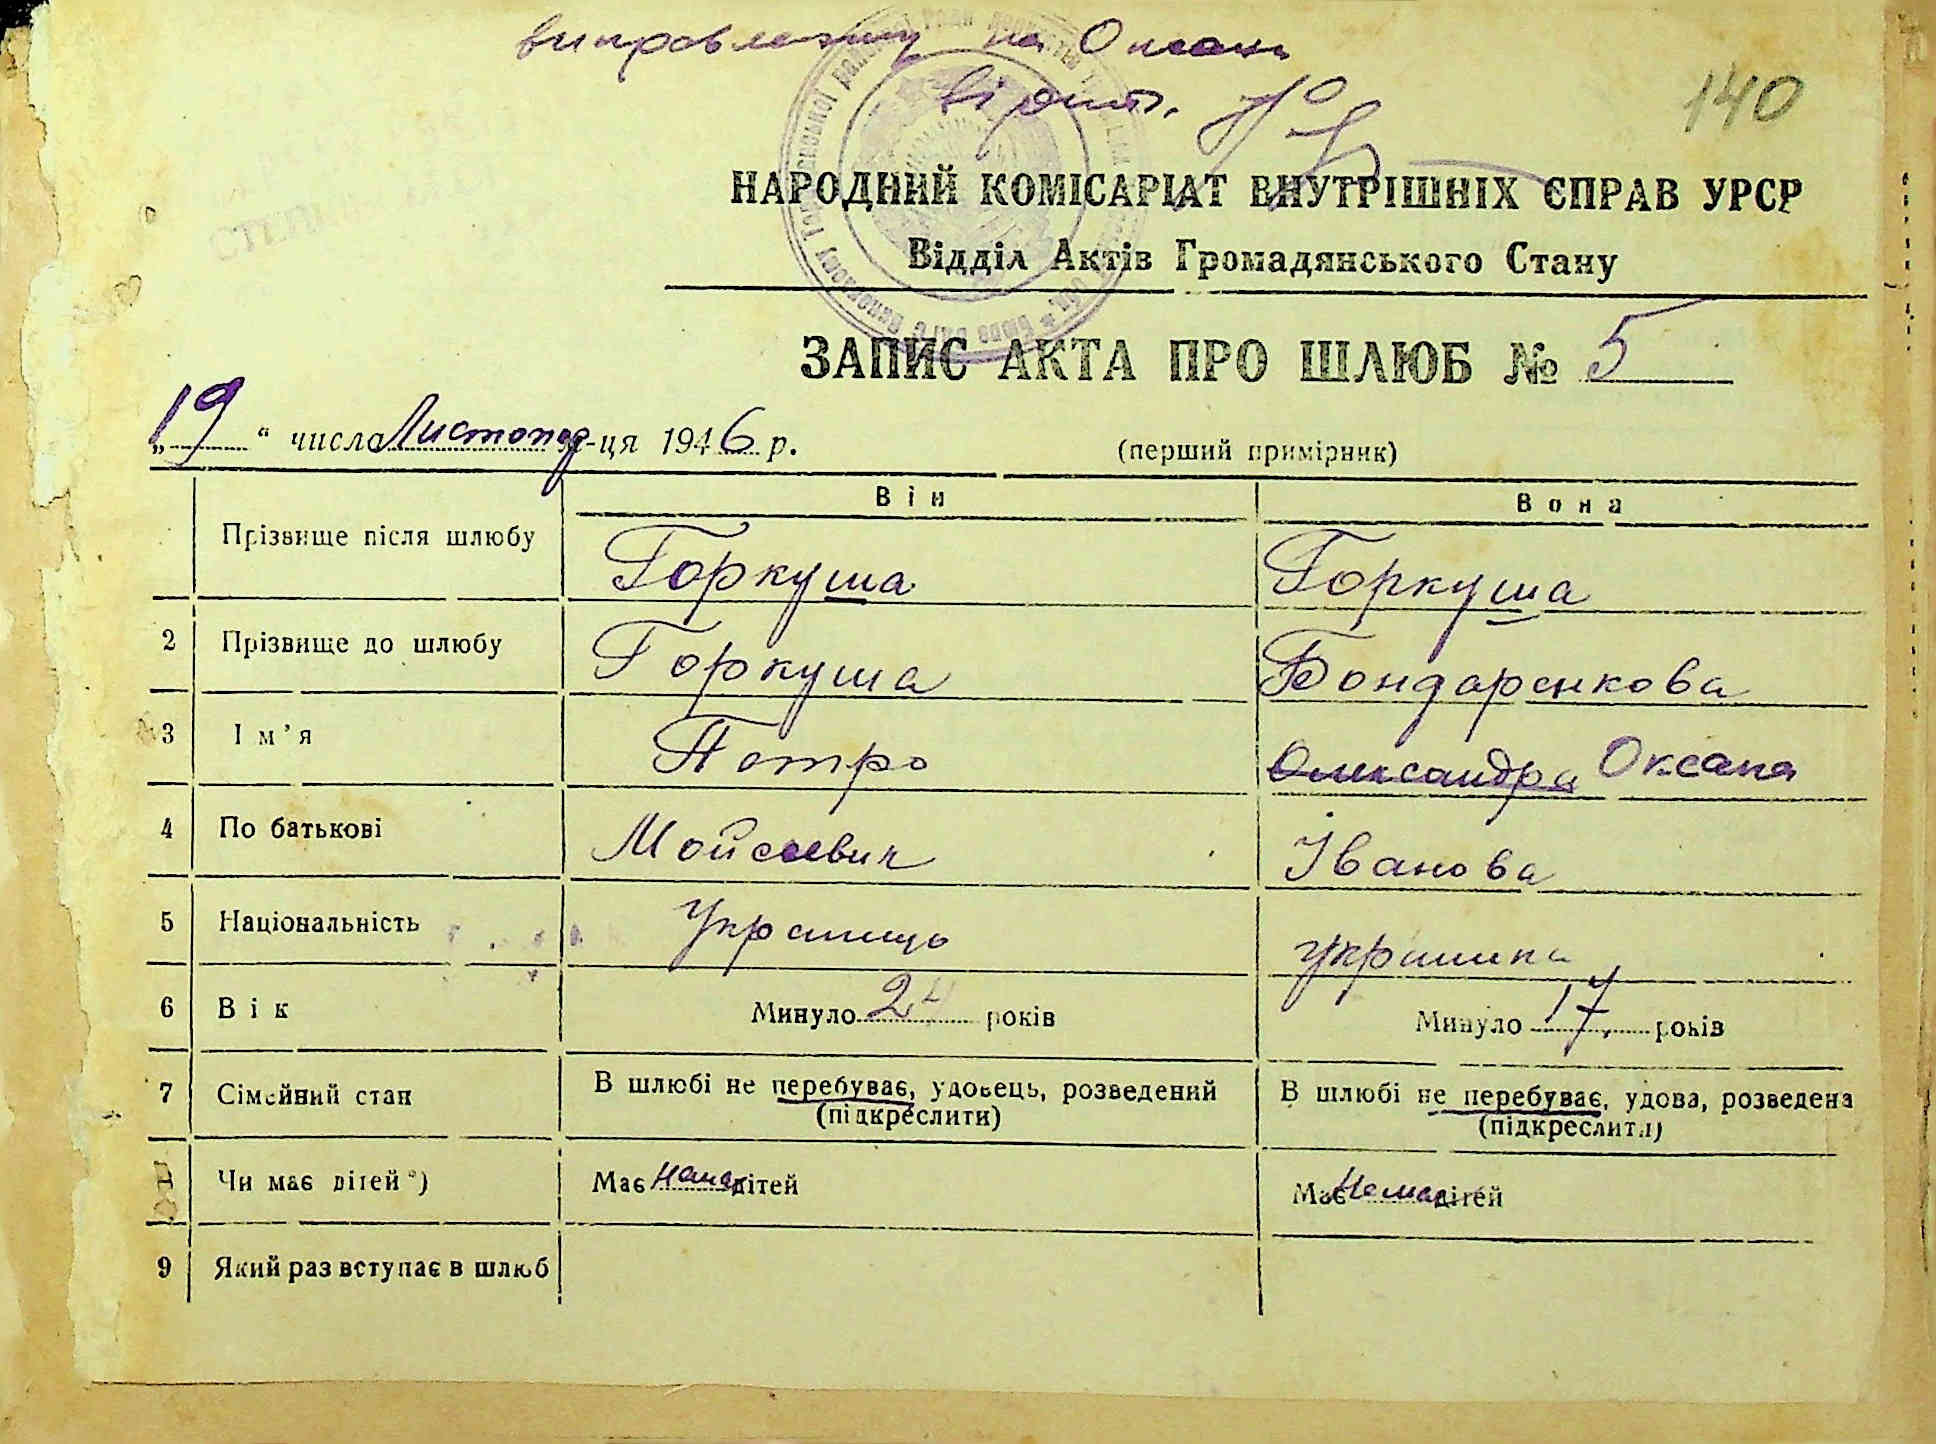 виправленому на Оксани
вірить.
140
НАРОДНИЙ КОМІСАРІАТ ВНУТРІШНІХ СПРАВ УРСР
Відділ Актів Громадянського Стану
ЗАПИС АКТА ПРО ШЛЮБ № 5
„19“ числа Листопад м-ця 1946 р. (перший примірник)
Він Вона
Прізвище після шлюбу Горкуша Горкуша
2 Прізвище до шлюбу Горкуша Бондаренкова
3 Ім'я Петро Олександра Оксана
4 По батькові Мойсеевич Іванова
5 Національність Українець українка
6 Вік Минуло 24 років Минуло 17 років
7 Сімейний стан В шлюбі не перебуває, удовець, розведений В шлюбі не перебуває, удова, розведена
(підкреслити) (підкреслити)
Чи має дітей*) Має немає дітей Має немає дітей
9 Який раз вступає в шлюб